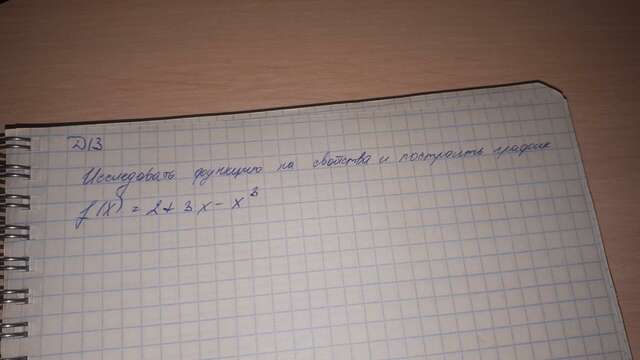 Д/З
Исследовать функцию на свойства и построить график
f(x) = 2 + 3x - x³